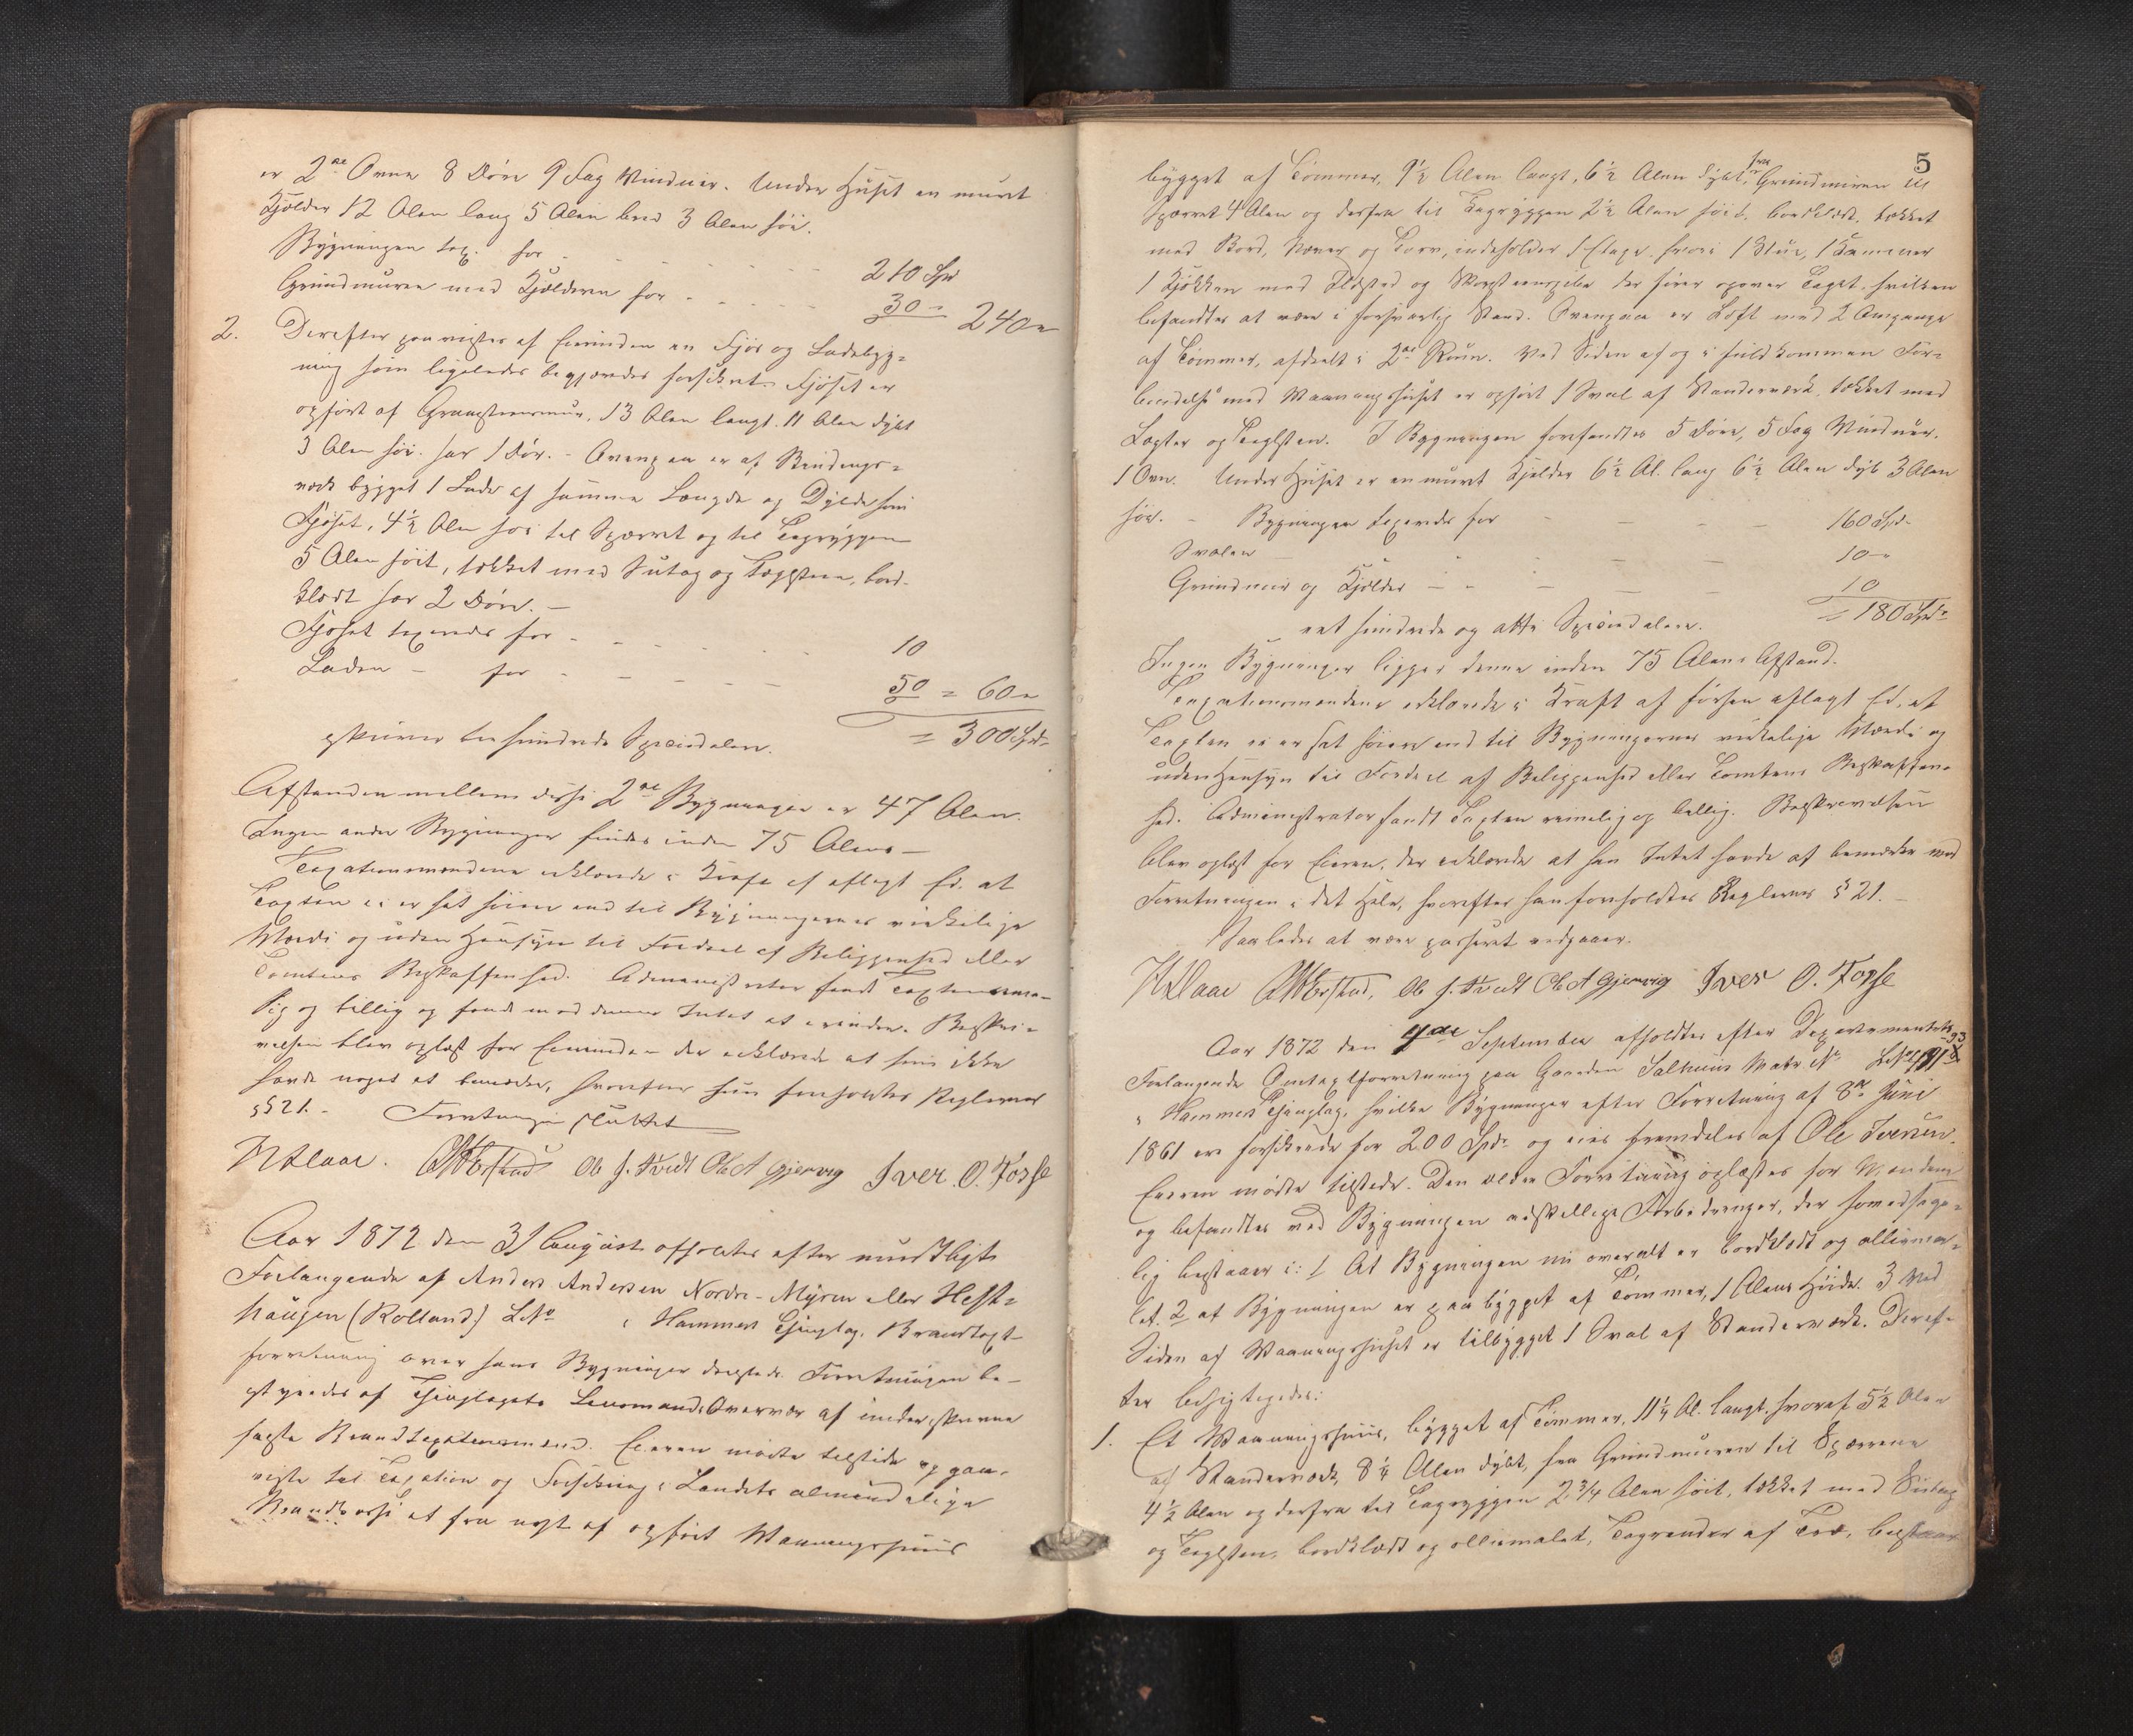 er 2de Ovne 8 Døre 9 Fag Vinduer. Under Huset en muret
Kjelder 12 Alen lang 5 Alen bred 3 Alen høi.
Bygningen tax. for - - - - - 210 Spd
Grundmuren med Kjelderen for - - - - 30 " 240 "
2. Derefter paavistes af Eierinden en Fjøs og Ladebyg=
ning som ligeledes begjærtes forsikret. Fjøset er
opført af Graasteensmur, 13 Alen langt. 11 Alen dybt
3 Alen høi. har 1 Dør. - Ovenpaa er af Bindings=
værk bygget 1 Lade af samme Længde og Dybde som
Fjøset, 4½ Alen høi til Sperret og til Tagryggen
5 Alen høit, tækket med Sutag og Taglsteen, bord-
klædt har 2 Døre. -
Fjøset taxeredes for - - - - 10
Laden - for - - - - 50 = 60 "
= 300 Spd
skriver tre hundrede Speciedaler.
Afstanden mellem disse 2de Bygninger er 47 Alen.
Ingen andre Bygninger findes inden 75 Alens -
Taxationsmændene erklærede i Kraft af aflagt Ed. at
Taxten ei er sat høiere end til Bygningernes virkelige
Værdi og uden Hensyn til Fordeel af Beliggenhed eller
Tomtens Beskaffenhed. Administrator fandt Taxten rime-
lig og billig og fandt mod denne Intet at erindre. Beskri=
velsen blev oplæst for Eierinden der erklærede at hun ikke
havde noget at bemærke, hvorefter hun foreholdtes Reglernes
§21. - Forretningen sluttet
Ole J. Tvedt Ole A Gjervig Iver. O. Fosse
Aar 1872 den 31 August afholdtes efter mundtligt
Forlangende af Anders Andersen Nordre-Myren eller Hest=
haugen (Rolland) L.No i Hammers Thinglag, Brandtaxt-
forretning over hans Bygninger dersteds. Forretningen be-
styredes af Thinglagets Lensmand. Overvær af underskrevne
faste Brandtaxationsmænd. Eieren mødte tilstede og paa-
viste til Taxation og Forsikring i Landets almindelige
Brandkasse et fra nyt af opført Vaaningshuus
5
bygget af Tømmer, 9½ Alen langt, 6½ Alen dybt, fra Grundmuren til
Sperret 4 Alen og derfra til Tagryggen 2½ Alen høit. bordklædt. tækket
med Bord, Næver og Torv, indeholder 1 Etage hvori 1 Stue, 1 Kammer
1 Kjøkken med Ildsted og Skorsteenspibe der fører igjennem Taget, hvilken
befandtes at være i forsvarlig Stand. Ovenpaa er Loft med 2 Omgange
af Tømmer, afdeelt i 2de Rum. Ved Siden af og i fuldkommen For=
bindelse med Vaaningshuset er opført 1 Sval af Standerværk, tækket med
Lægter og Taglsten. I Bygningen forefandtes 5 Døre, 5 Fag Vinduer.
1 Ovn. Under Huset er en muret Kjelder 6½ Al. lang 6½ Alen dyb 3 Alen
høi. - Bygningen taxeredes for - - - 160 Spd
Svalen - - - 10 -
Grundmur og Kjelder - - - - 10
= 180 Spd
eet hundrede og otti Speciedaler.
Ingen Bygninger ligger denne inden 75 Alens Afstand.
Taxationsmændene erklærede i Kraft af forhen aflagt Ed, at
Taxten ei er sat høiere end til Bygningernes virkelige Værdi og
uden Hensyn til Fordeel af Beliggenhed eller Tomtens Beskaffen-
hed. Administrator fandt Taxten rimelig og billig. Beskrivelsen
blev oplæst for Eieren, der erklærede at han Intet havde at bemærke ved
Forretningen i det Hele, hvorefter han foreholdtes Reglernes §21. -
Saaledes at være passeret vedgaaes.
Ole J. Tvedt Ole A Gjervig Iver O. Fosse
Aar 1872 den 4de September afholdtes efter Departementets
Forlangende Omtaxtforretning paa Gaarden Salhuus Matr. No LNo
i Hammers Thinglag, hvilke Bygninger efter Forretning af 8de Juni
1861 er forsikrede for 200 Spd. og eies fremdeles af Ole Iversen.
Eieren mødte tilstede. Den ældre Forretning oplæstes for Mændene
og befandtes ved Bygningen adskillige Forbedringer, der hovedsage=
lig bestaaer i: 1 At Bygningen nu overalt er bordklædt og olliema=
let. 2 at Bygningen er paabygget af Tømmer, 1 Alens Høide. 3 Ved
Siden af Vaaningshuset er tilbygget 1 Sval af Standerværk. Deref-
ter besigtigedes:
1. Et Vaaningshuus, bygget af Tømmer, 11¼ Al. langt. hvoraf 5½ Alen
af Standerværk, 8¼ Alen dybt, fra Grundmuren til Sperrene
4½ Alen og derfra til Tagryggen 2¾ Alen høit, tækket med Sutag
og Taglsten, bordklædt og olliemalet, Tagrender af Træ, bestaar